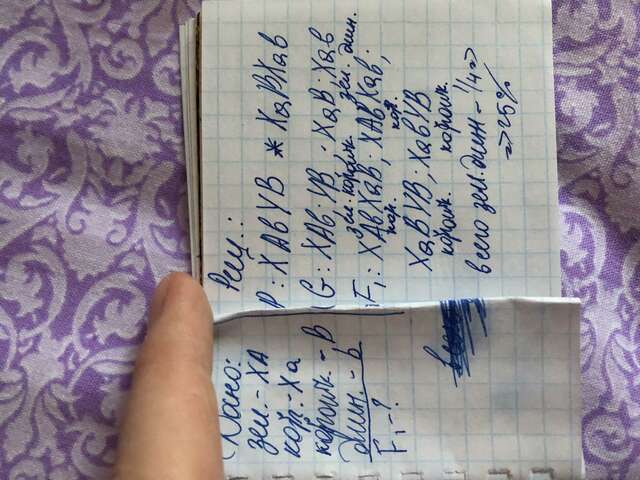 Дано:
зел. - XA
кор. - Xa
коротк. - B
длин. - b
F₁ - ?
Реш.:
P: XAb YB * XaBXab
G: XAb; YB; XaB; Xab
зел. коротк. зел. длин.
F₁: XAbXaB; XAbXab;
кор. кор.
XaBYB; XabYB
коротк. коротк.
всего зел. длин - 1/4 =>
=> 25%